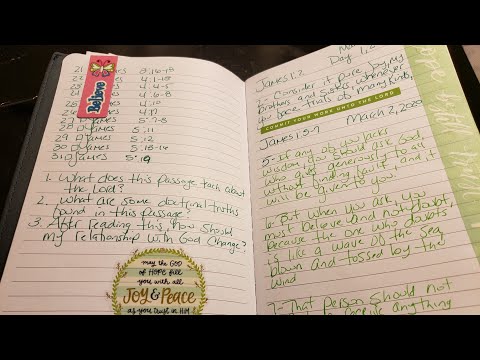 21 James 3:16-18
James 4:1-3
James
James 4:6-8
James
26 James 4:17
27 James 5:7-8
28 James 5:11
29 James 5:12
30 James 5:13-16
31 James 5:19
Believe
1. What does this passage teach about
the Lord?
2. What are some doctrinal truths
found in this passage?
3. After reading this, how should
my relationship with God change?
may the GOD
of HOPE fill
you with all
JOY & PEACE
as you trust in HIM
Day 1,
James 1:2
2- Consider it pure joy, my
brothers and sisters, whenever
you face trials of many kinds,
COMMIT YOUR WORK UNTO THE LORD
James 1:5-7 March 2, 2020
5- If any of you lacks
wisdom, you should ask God,
who gives generously to all
without finding fault, and it
will be given to you.
6- But when you ask, you
must believe and not doubt,
because the one who doubts
is like a wave of the sea,
blown and tossed by the
wind
7- That person should not
to receive anything